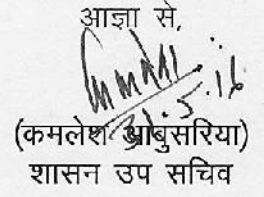 आज्ञा से,
31.5.16
(कमलेश आबुसरिया)
शासन उप सचिव